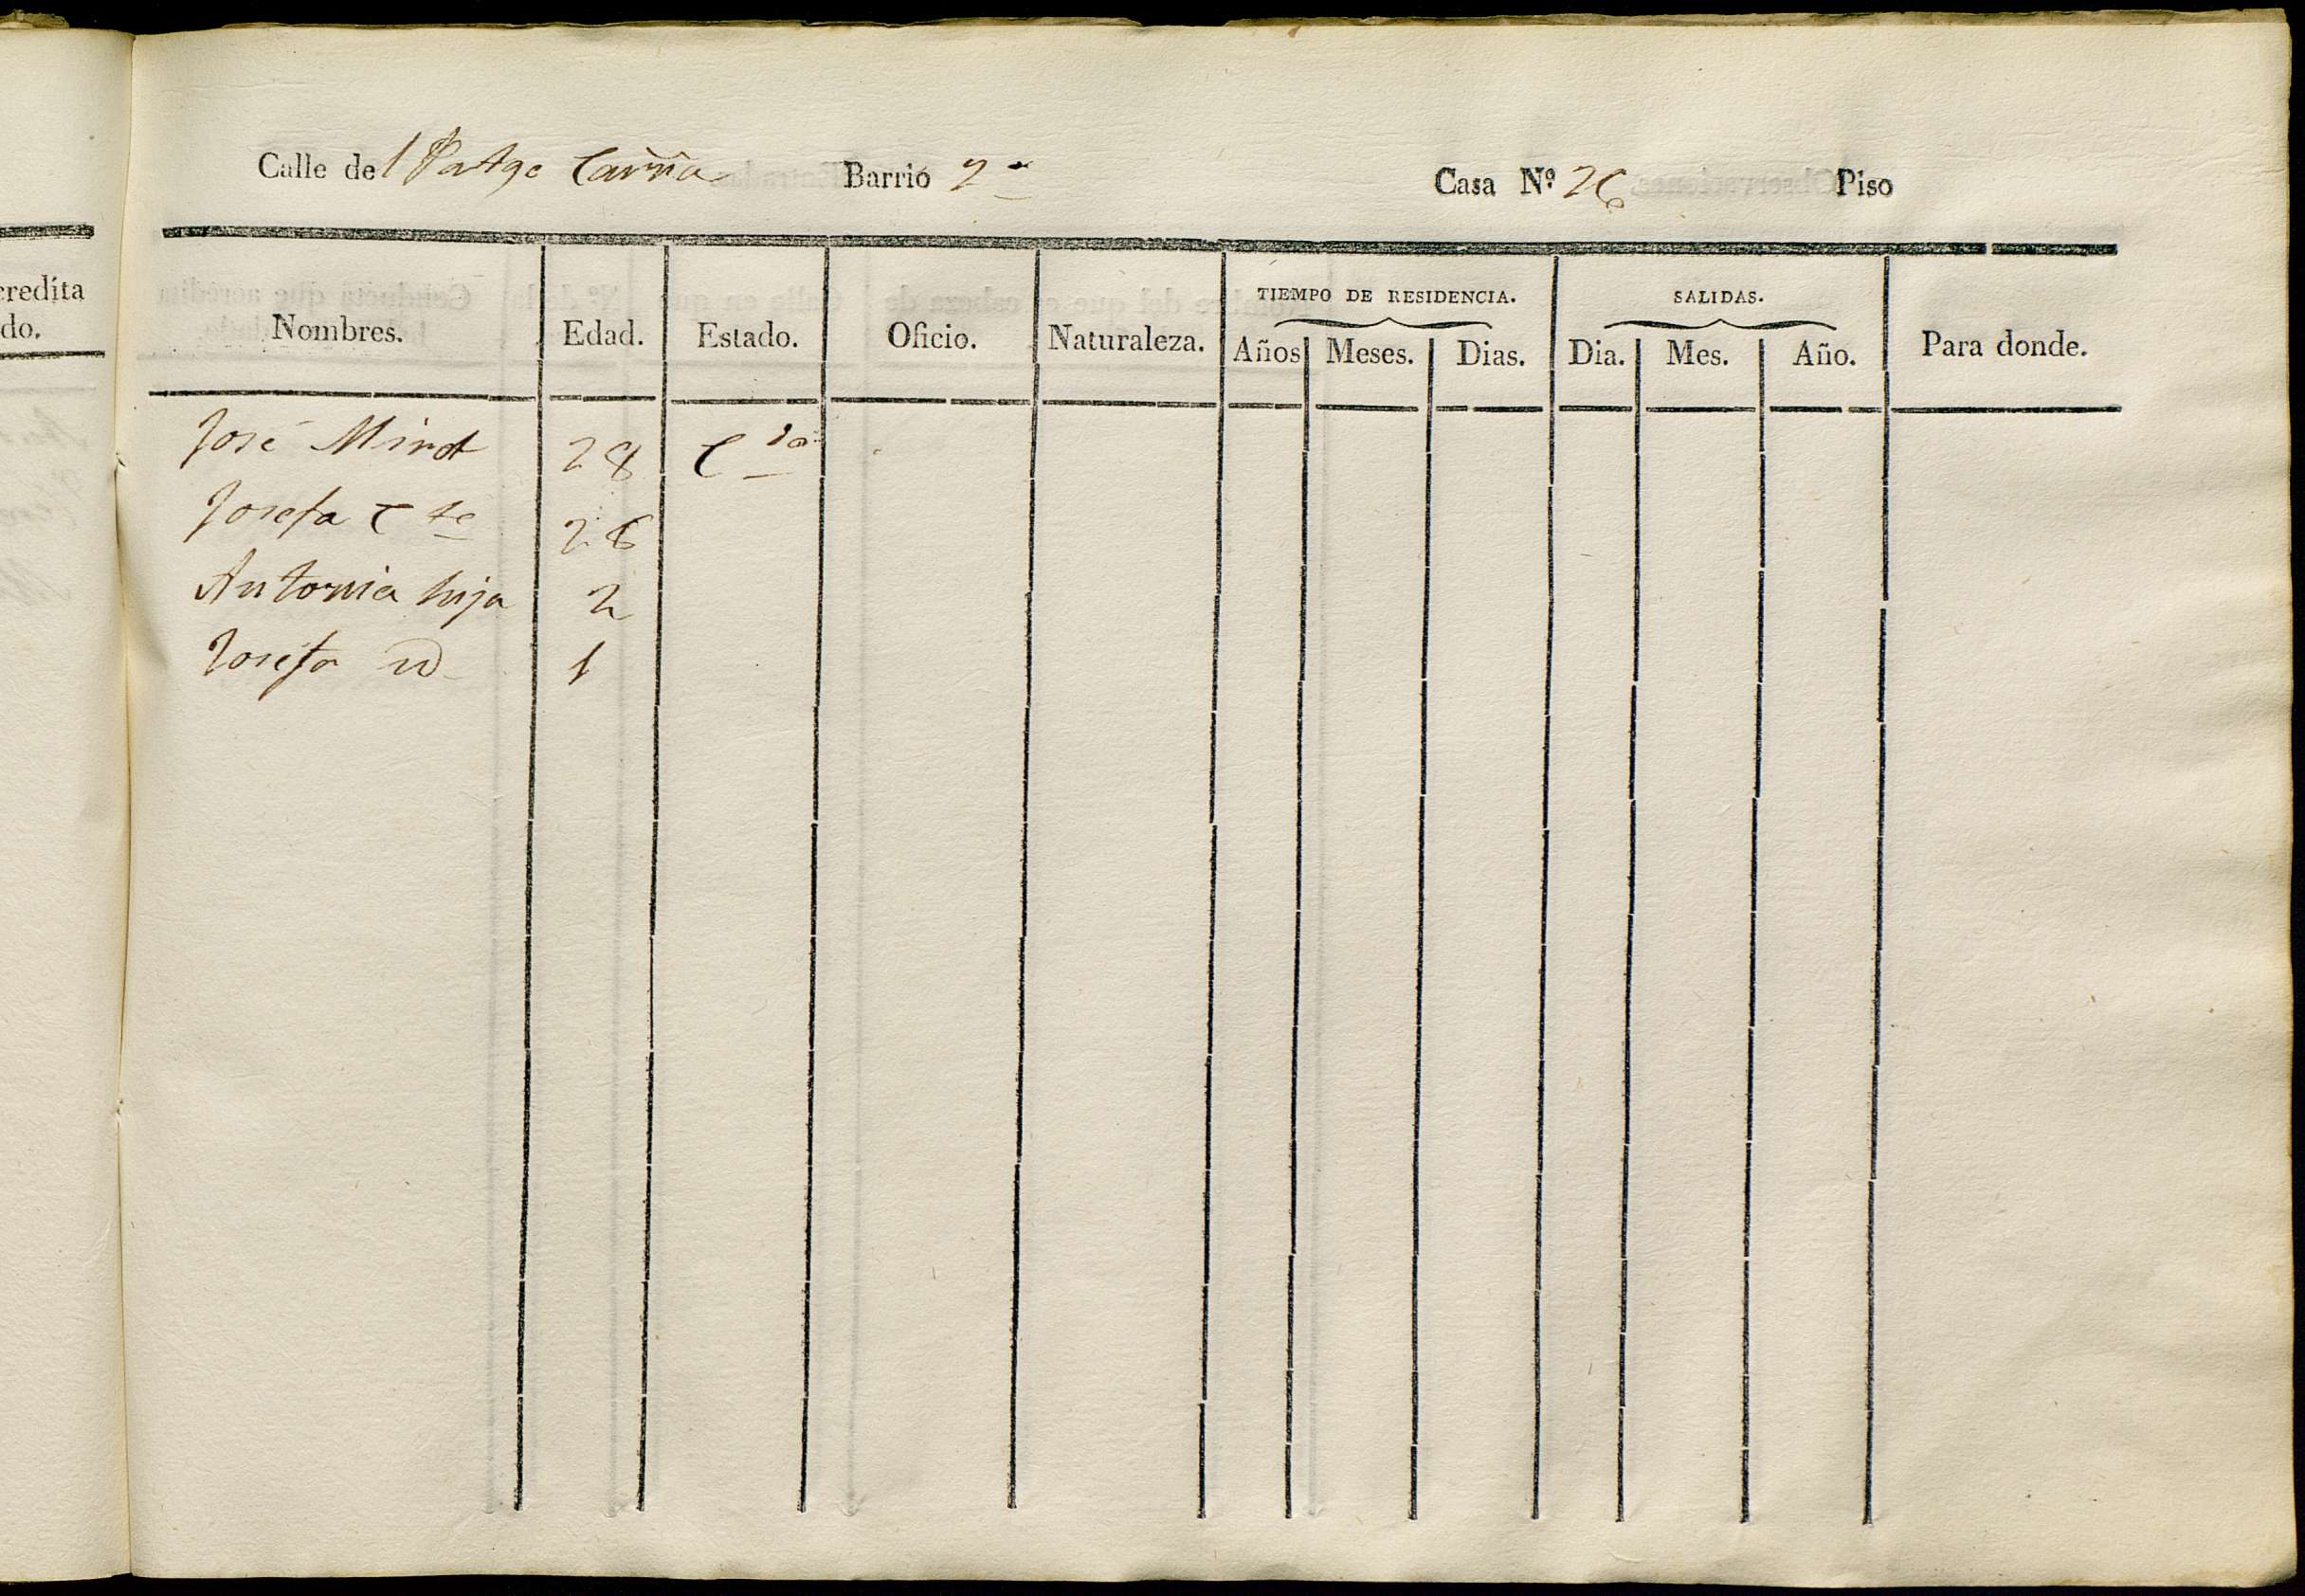 credita
do.
Calle del Patge Carria Barrio 2º Casa Nº 26 Piso
Nombres. Edad. Estado. Oficio. Naturaleza. TIEMPO DE RESIDENCIA. Años Meses. Dias. SALIDAS. Dia. Mes. Año. Para donde.
José Mirot 28 Cdo
Josefa Cte 26
Antonia hija 2
Josefa id 1